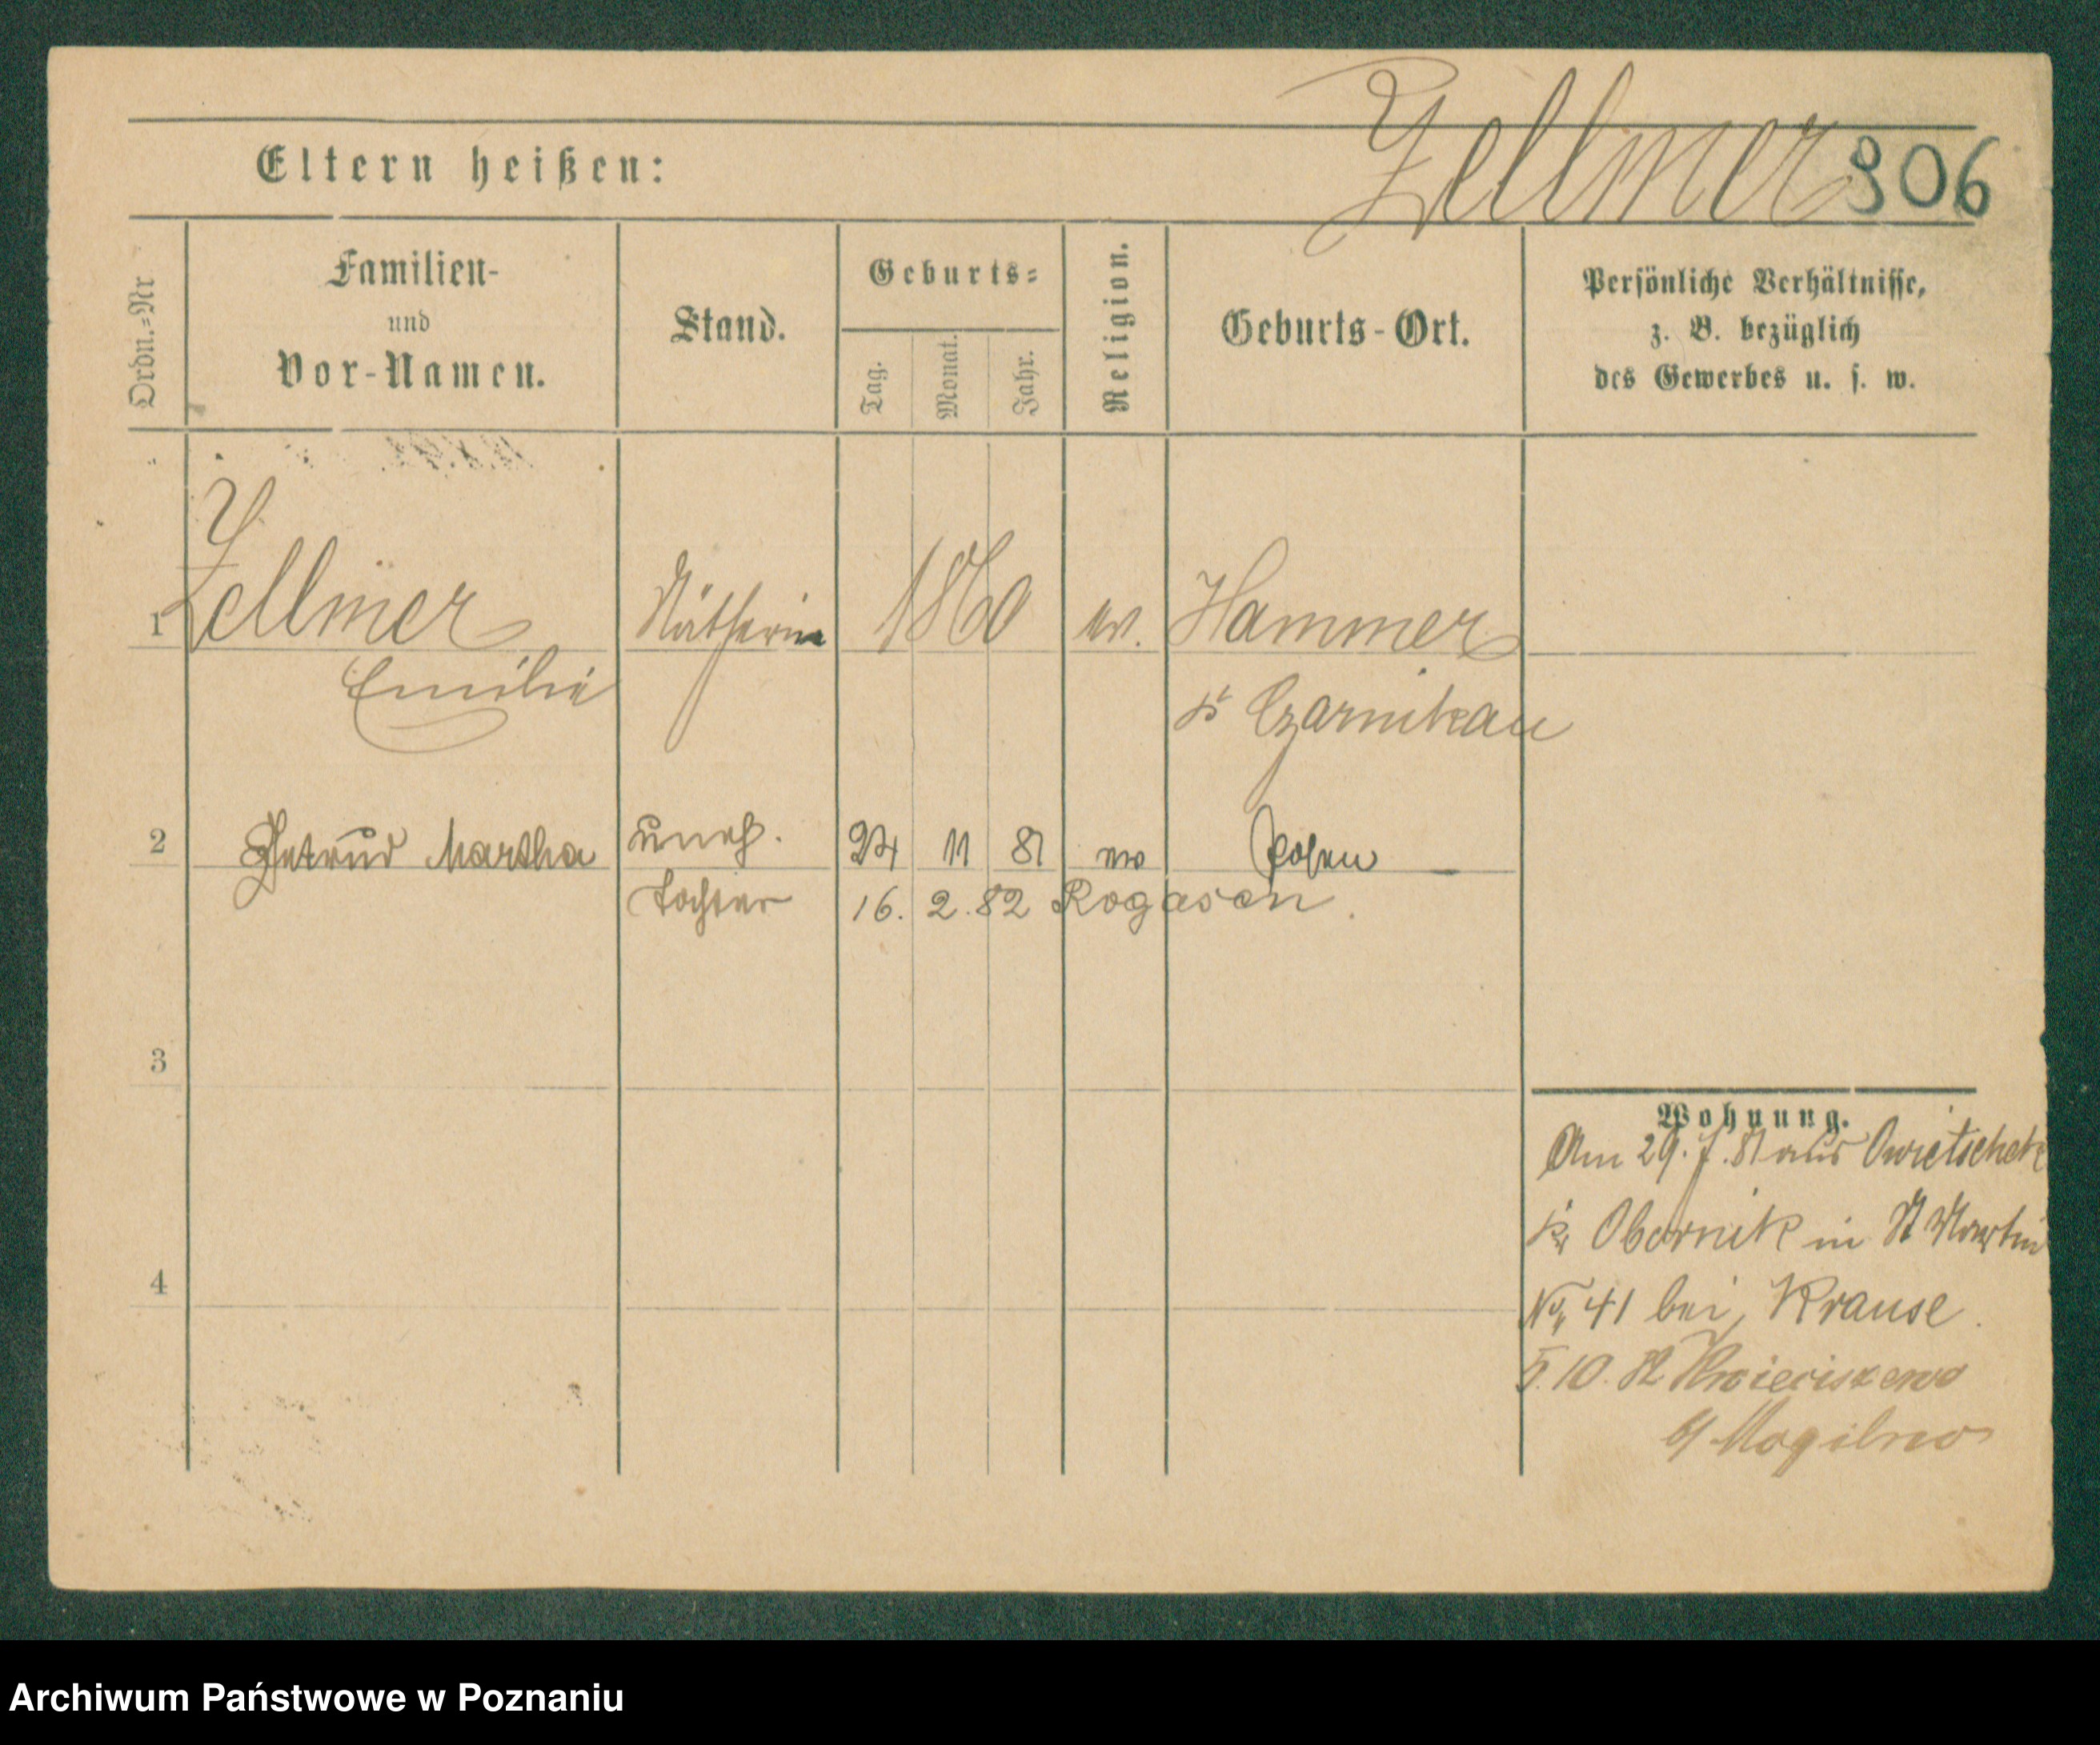 Zellmer 306
Eltern heißen:
Ordn.=Nr
Familien-
und
Vor-Namen.
Stand.
Geburts=
Tag.
Monat.
Jahr.
Religion.
Geburts-Ort.
Persönliche Verhältnisse,
z. B. bezüglich
des Gewerbes u. s. w.
1 Zellmer Nätherin 1860 ev. Hammer
Emilie Kr Czarnikau
2 Gertrud Martha uneh. 24 11 81 ev Posen
Tochter 16. 2. 82 Rogasen.
3
4
Wohnung.
Am 29. 7. 81 aus Owietschek
Kr Obornik in St Martin
No 41 bei Krause.
5. 10. 82
b/ Mogilno
Archiwum Państwowe w Poznaniu